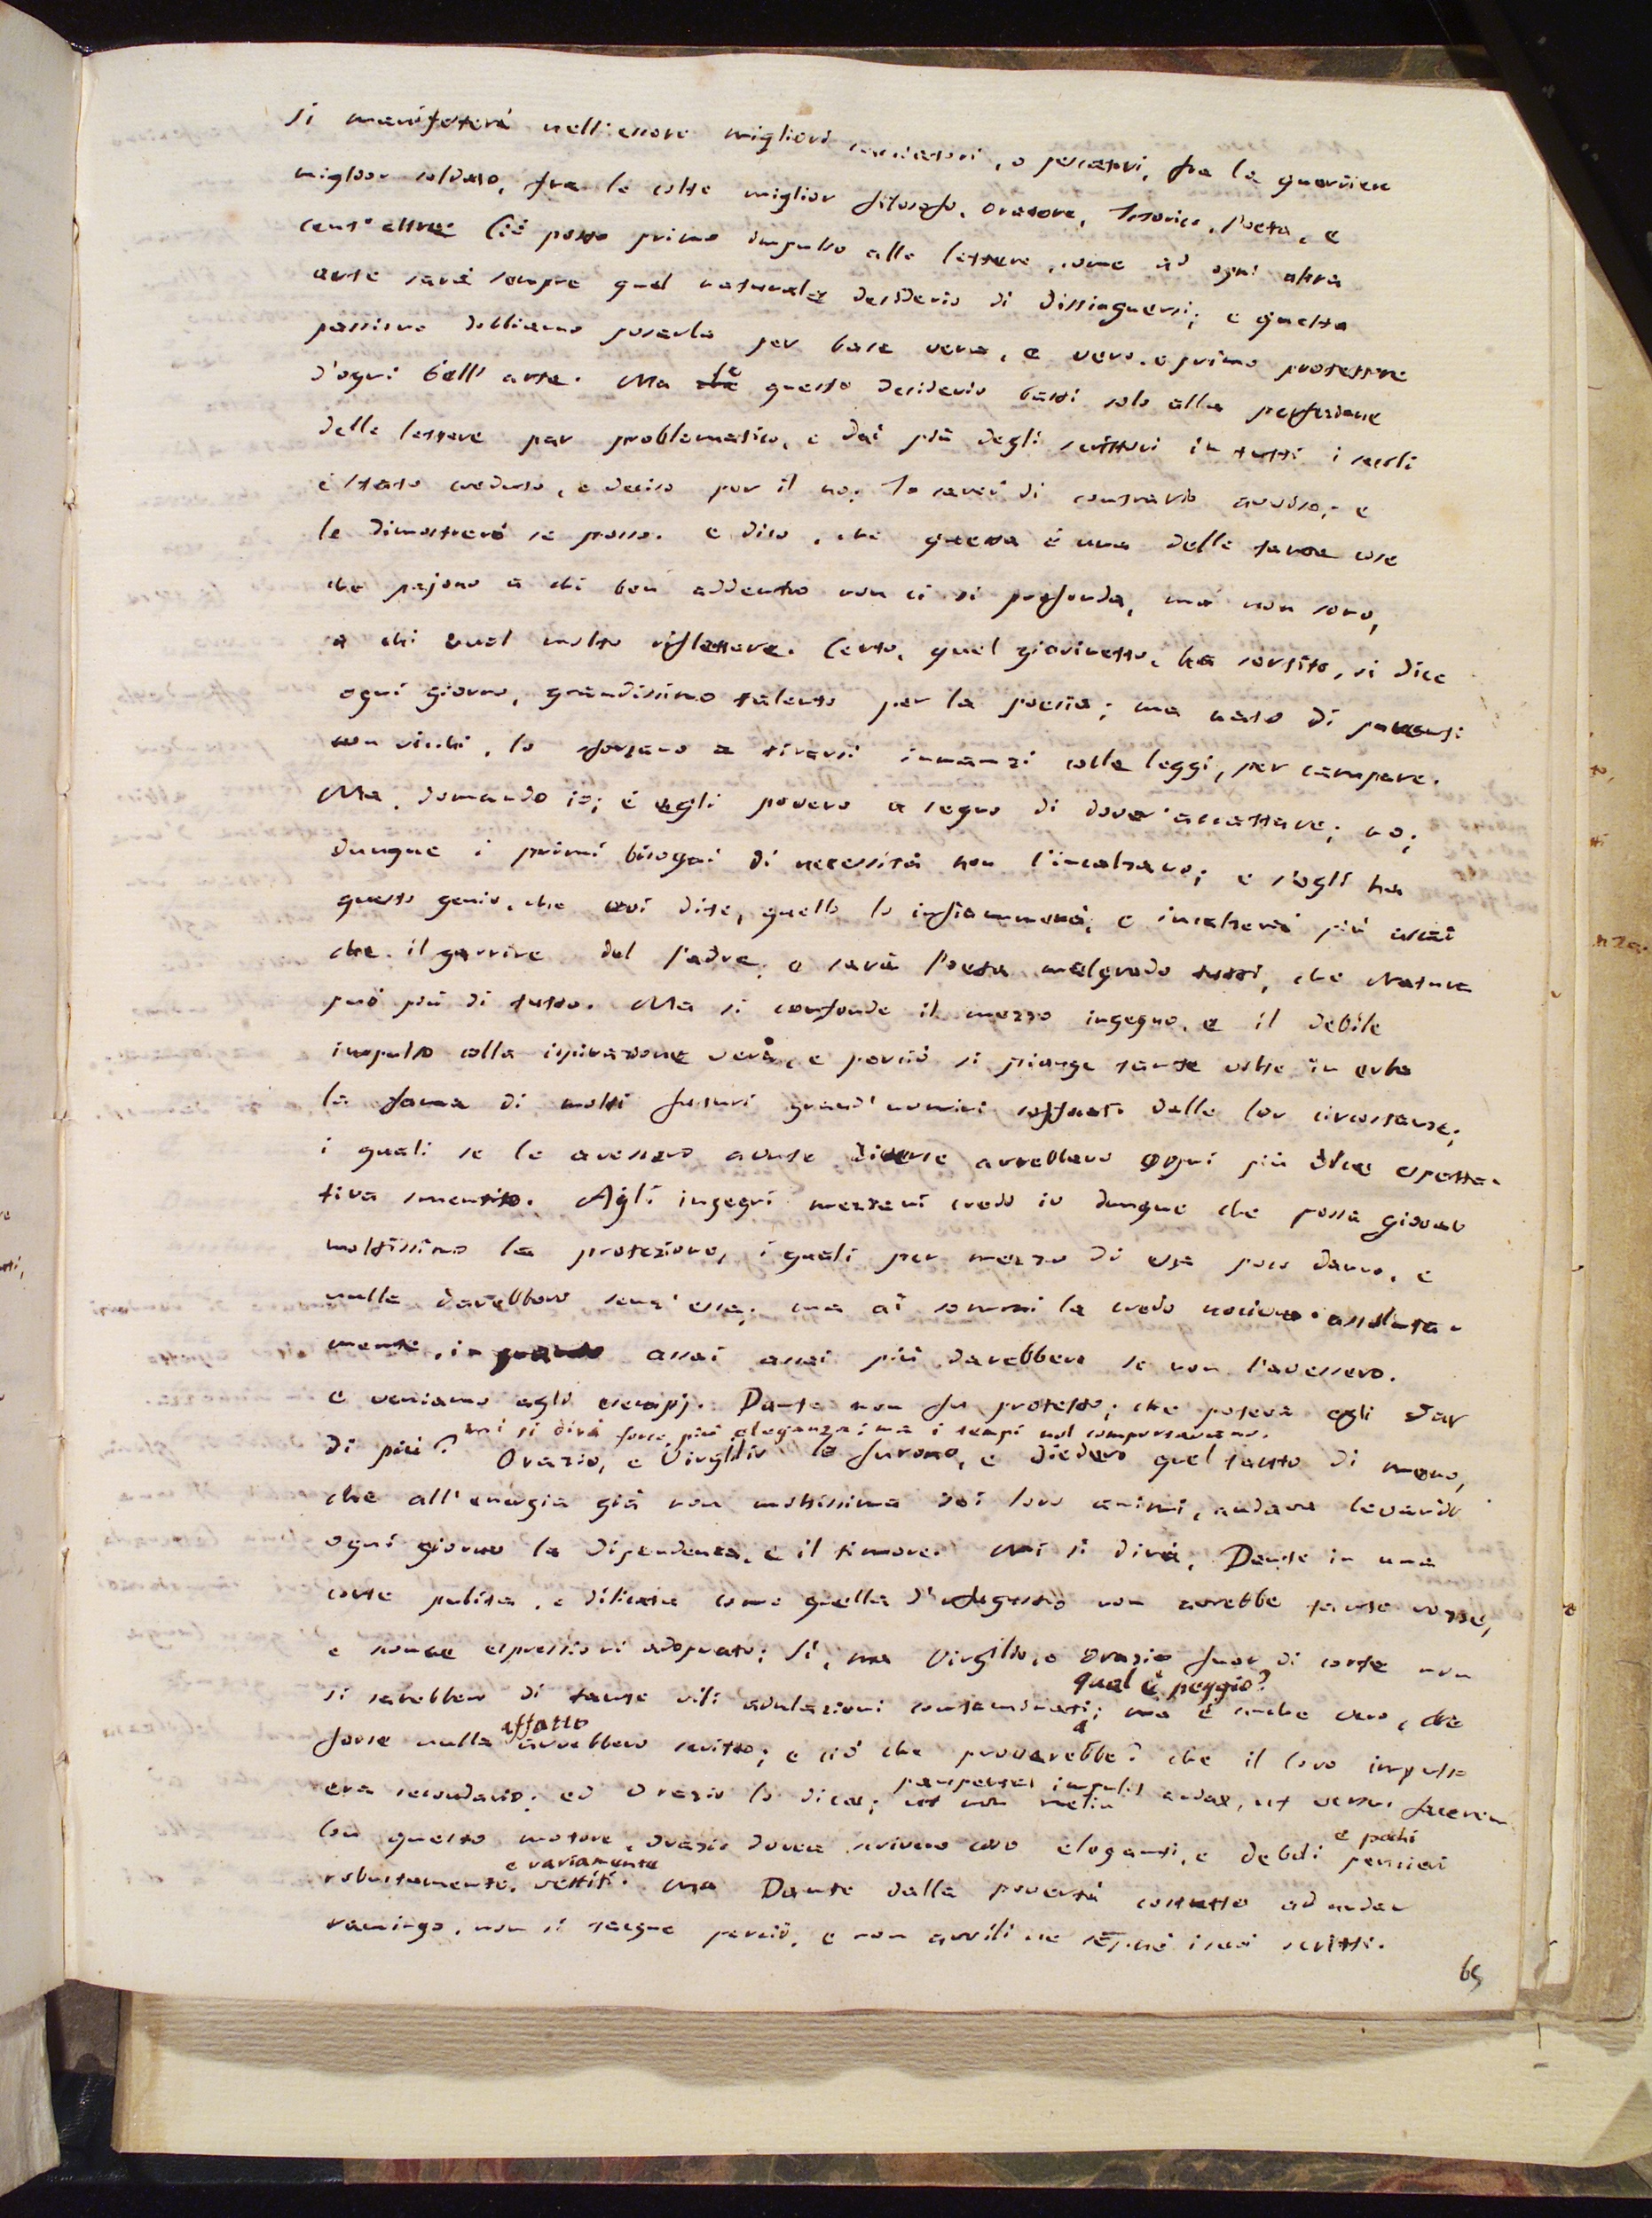 si manifesterà nell'essere migliori cacciatori, o pescatori, fra le guerriere
miglior soldato, fra le colte miglior filosofo, oratore, Istorico, Poeta, e
cent'altre. Ciò posto primo impulso alle lettere, come ad ogni altra
arte sarà sempre quel naturale desiderio di distinguersi; e questa
passione dobbiamo posarla per base vera, e vero, e primo protettore
d'ogni bell'arte. Ma se questo desiderio basti solo alla perfezione
delle lettere par problematico, e dai più degli scrittori in tutti i secoli
è stato creduto, e deciso per il no; Io sarei di contrario avviso; e
lo dimostrerò se posso. e dico, che questa è una delle tante cose
che pajono a chi ben addentro non ci si profonda, ma non sono,
a chi vuol molto riflettere. Certo, quel giovinetto, ha sortito, si dice
ogni giorno, grandissimo talento per la poesia; ma nato di parenti
non ricchi, lo sforzano a tirarsi innanzi colle leggi, per campare.
Ma, domando io; è egli povero a segno di dover accattare; no;
dunque i primi bisogni di necessità non l'incalzano; e s'egli ha
questo genio, che voi dite, quello lo infiammerà, e incalzerà più assai
che il garrire del Padre, e sarà Poeta malgrado tutti, che Natura
può più di tutto. Ma si confonde il mezzo ingegno, e il debile
impulso colla ispirazione vera, e perciò si piange tante volte in erba
la fama di molti futuri grand'uomini soffocati dalle lor circostanze;
i quali se le avessero avute diverse avrebbero ogni più dolce espetta-
tiva smentito. Agli ingegni mezzani credo io dunque che possa giovar
moltissimo la protezione, i quali per mezzo di essa poco danno, e
nulla darebbero senz'essa; ma ai sommi la credo nociva assoluta-
mente, in quanto assai assai più darebbero se non l'avessero.
e veniamo agli esempj. Dante non fu protetto; che poteva egli dar
mi si dirà forse più eleganza; ma i tempi nol comportavano.
di più? Orazio, e Virgilio lo furono, e diedero quel tanto di meno,
che all'energia già non moltissima dei loro animi, andava levando
ogni giorno la dipendenza, e il timore. Mi si dirà, Dante in una
corte pulita, e dilicata come quella d'Augusto non avrebbe tante rozze,
e sconce espressioni adoprato; Sì, ma Virgilio, o Orazio fuor di corte non
qual è peggio?
si sarebbero di tante vili adulazioni contaminati; ma è anche vero, che
affatto
forse nulla avrebbero scritto; e ciò che proverebbe? che il loro impulso
paupertas impulit
era secondario; ed Orazio lo dice; audax, ut versus facerem
e pochi
Con questo motore, Orazio dovea scrivere eleganti, e debili pensieri
e variamente
robustamente, vestiti. Ma Dante dalla povertà costretto ad andar
ramingo, non si tacque perciò, e non avvilì ne sè, nè i suoi scritti.
65